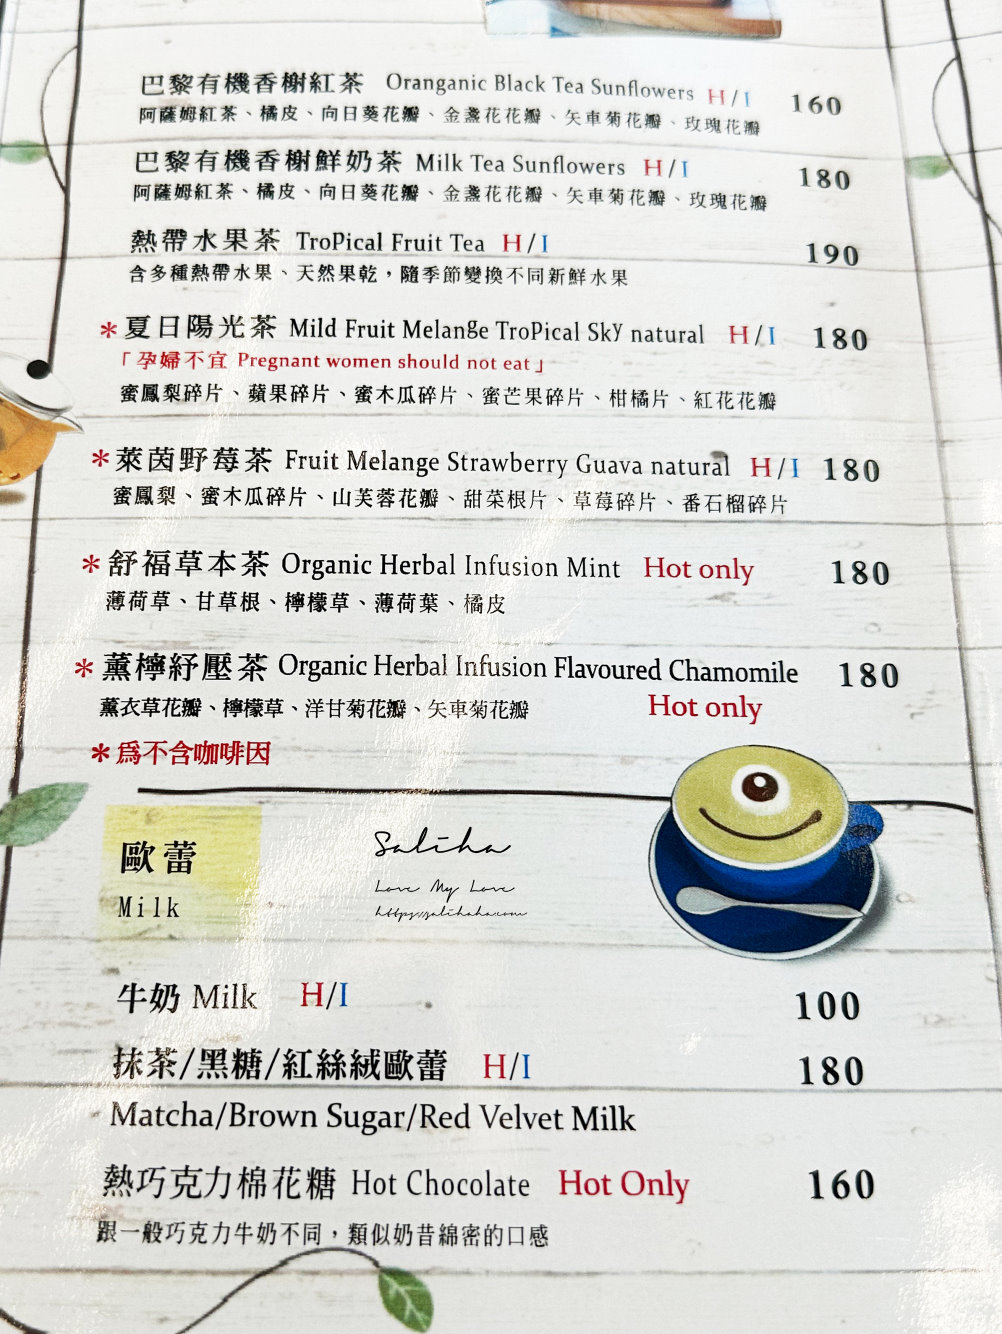 巴黎有機香榭紅茶 Oranganic Black Tea Sunflowers H/I 160
阿薩姆紅茶、橘皮、向日葵花瓣、金盞花花瓣、矢車菊花瓣、玫瑰花瓣
巴黎有機香榭鮮奶茶 Milk Tea Sunflowers H/I 180
阿薩姆紅茶、橘皮、向日葵花瓣、金盞花花瓣、矢車菊花瓣、玫瑰花瓣
熱帶水果茶 TroPical Fruit Tea H/I 190
含多種熱帶水果、天然果乾，隨季節變換不同新鮮水果
*夏日陽光茶 Mild Fruit Melange TroPical Sky natural H/I 180
「孕婦不宜 Pregnant women should not eat」
蜜鳳梨碎片、蘋果碎片、蜜木瓜碎片、蜜芒果碎片、柑橘片、紅花花瓣
*萊茵野莓茶 Fruit Melange Strawberry Guava natural H/I 180
蜜鳳梨、蜜木瓜碎片、山芙蓉花瓣、甜菜根片、草莓碎片、番石榴碎片
*舒福草本茶 Organic Herbal Infusion Mint Hot only 180
薄荷草、甘草根、檸檬草、薄荷葉、橘皮
*薰檸紓壓茶 Organic Herbal Infusion Flavoured Chamomile 180
薰衣草花瓣、檸檬草、洋甘菊花瓣、矢車菊花瓣 Hot only
*爲不含咖啡因
歐蕾
Milk
Saliha
Love My Love
https://salihaha.com
牛奶 Milk H/I 100
抹茶/黑糖/紅絲絨歐蕾 H/I 180
Matcha/Brown Sugar/Red Velvet Milk
熱巧克力棉花糖 Hot Chocolate Hot Only 160
跟一般巧克力牛奶不同，類似奶昔綿密的口感